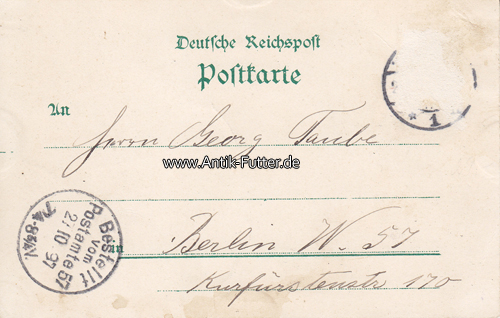 Deutsche Reichspost
Postkarte
An
Herrn Georg Taube
www.Antik-Futter.de
in Berlin W. 57
Kurfürstenstr 170
Bestellt
vom
Postamte 57
2/10 97
7¼-8½V.
* 1